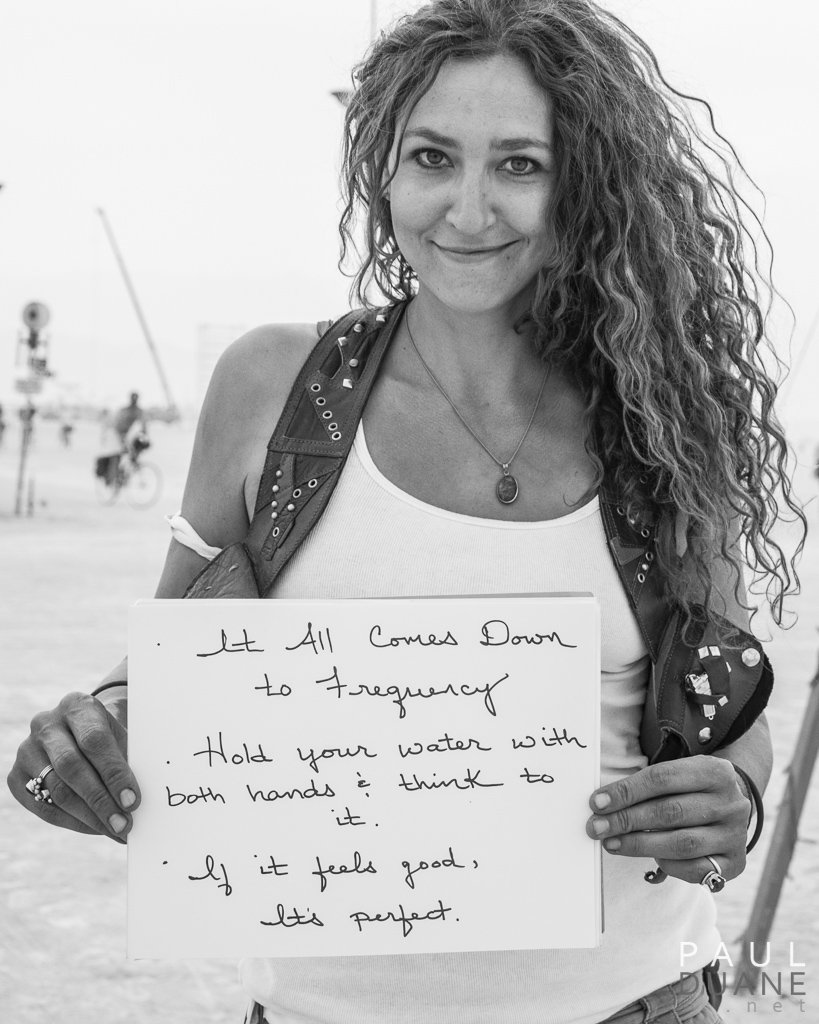 · It All Comes Down
to Frequency
· Hold your water with
both hands & think to
it.
· If it feels good,
It's perfect.
PAUL
DUANE
.net